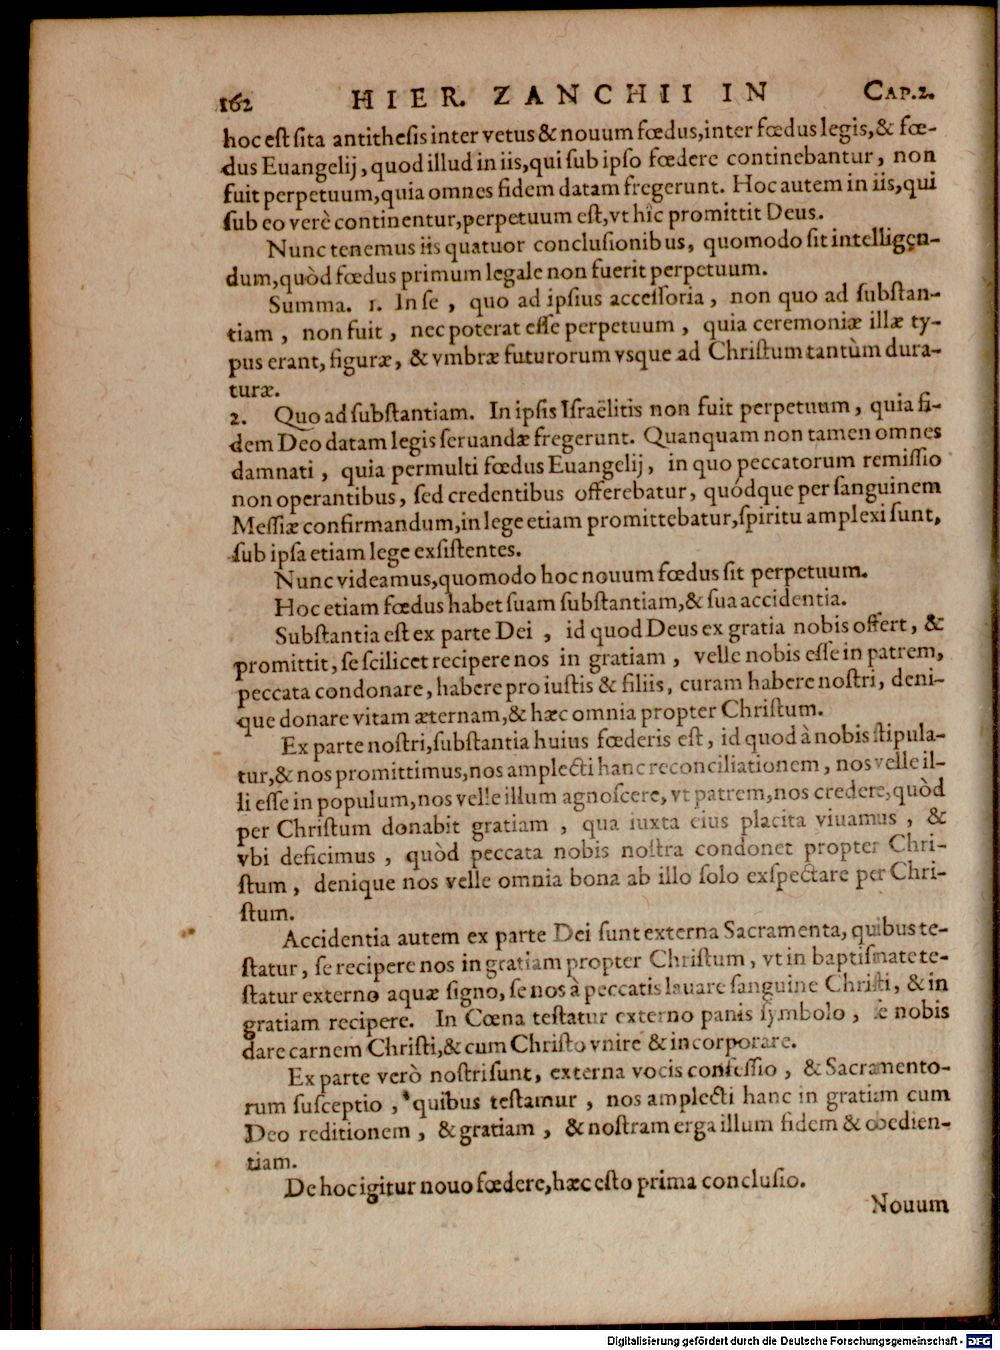 162 HIER. ZANCHII IN CAP.2.
hoc est sita antithesis inter vetus & nouum fœdus, inter fœdus legis, & fœ-
dus Euangelij, quod illud in iis, qui sub ipso fœdere continebantur, non
fuit perpetuum, quia omnes fidem datam fregerunt. Hoc autem in iis, qui
sub eo verè continentur, perpetuum est, vt hîc promittit Deus.
Nunc tenemus iis quatuor conclusionibus, quomodo sit intelligen-
dum, quòd fœdus primum legale non fuerit perpetuum.
Summa. 1. In se, quo ad ipsius accessoria, non quo ad substan-
tiam, non fuit, nec poterat esse perpetuum, quia ceremoniæ illæ ty-
pus erant, figuræ, & vmbræ futurorum vsque ad Christum tantùm dura-
turæ.
2. Quo ad substantiam. In ipsis Israëlitis non fuit perpetuum, quia fi-
dem Deo datam legis seruandæ fregerunt. Quanquam non tamen omnes
damnati, quia permulti fœdus Euangelij, in quo peccatorum remissio
non operantibus, sed credentibus offerebatur, quódque per sanguinem
Messiæ confirmandum, in lege etiam promittebatur, spiritu amplexi sunt,
sub ipsa etiam lege exsistentes.
Nunc videamus, quomodo hoc nouum fœdus sit perpetuum.
Hoc etiam fœdus habet suam substantiam, & sua accidentia.
Substantia est ex parte Dei, id quod Deus ex gratia nobis offert, &
promittit, se scilicet recipere nos in gratiam, velle nobis esse in patrem,
peccata condonare, habere pro iustis & filiis, curam habere nostri, deni-
que donare vitam æternam, & hæc omnia propter Christum.
Ex parte nostri, substantia huius fœderis est, id quod à nobis stipula-
tur, & nos promittimus, nos amplecti hanc reconciliationem, nos velle il-
li esse in populum, nos velle illum agnoscere, vt patrem, nos credere, quòd
per Christum donabit gratiam, qua iuxta eius placita viuamus, &
vbi deficimus, quòd peccata nobis nostra condonet propter Chri-
stum, denique nos velle omnia bona ab illo solo exspectare per Chri-
stum.
Accidentia autem ex parte Dei sunt externa Sacramenta, quibus te-
statur, se recipere nos in gratiam propter Christum, vt in baptismate te-
statur externo aquæ signo, se nos à peccatis lauare sanguine Christi, & in
gratiam recipere. In Cœna testatur externo panis symbolo, se nobis
dare carnem Christi, & cum Christo vnire & incorporare.
Ex parte verò nostri sunt, externa vocis confessio, & Sacramento-
rum susceptio, quibus testamur, nos amplecti hanc in gratiam cum
Deo reditionem, & gratiam, & nostram erga illum fidem & obedien-
tiam.
De hoc igitur nouo fœdere, hæc esto prima conclusio.
Nouum
Digitalisierung gefördert durch die Deutsche Forschungsgemeinschaft - DFG